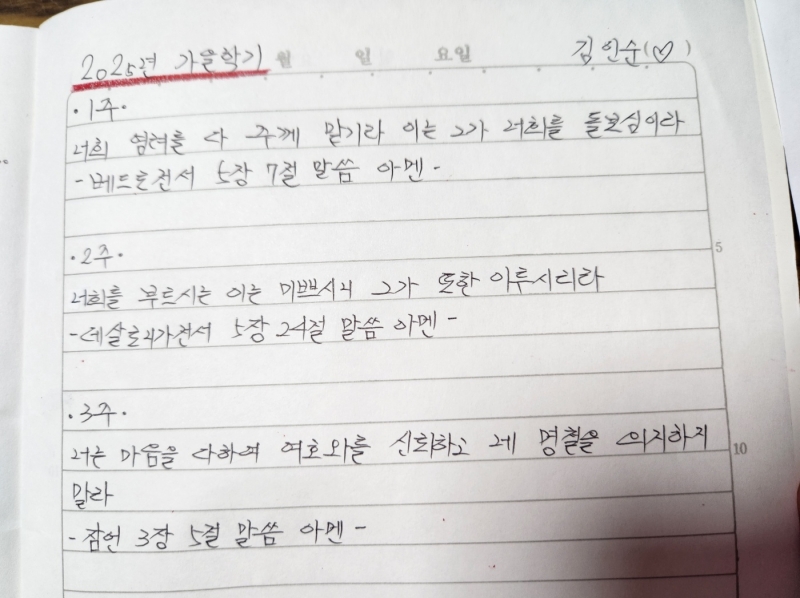 2025년 가을학기 월 일 요일 김인순(♡)
·1주·
너희 염려를 다 주께 맡기라 이는 그가 너희를 돌보심이라
-베드로전서 5장 7절 말씀 아멘-
·2주·
5
너희를 부르시는 이는 미쁘시니 그가 또한 이루시리라
-데살로니가전서 5장 24절 말씀 아멘-
·3주·
너는 마음을 다하여 여호와를 신뢰하고 네 명철을 의지하지
10
말라
-잠언 3장 5절 말씀 아멘-